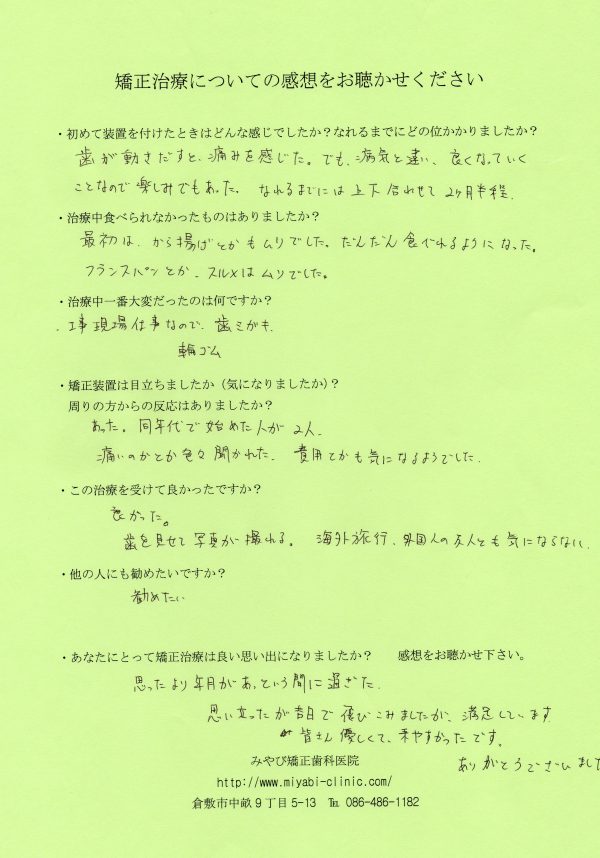 矯正治療についての感想をお聴かせください
・初めて装置を付けたときはどんな感じでしたか？なれるまでにどの位かかりましたか？
歯が動きだすと、痛みを感じた。でも、病気と違い、良くなっていく
ことなので楽しみでもあった。 なれるまでには上下合わせて2ヶ月半程.
・治療中食べられなかったものはありましたか？
最初は、から揚げとかもムリでした。だんだん食べれるようになった。
フランスパンとか、スルメはムリでした。
・治療中一番大変だったのは何ですか？
工事現場仕事なので、歯ミガキ.
輪ゴム
・矯正装置は目立ちましたか（気になりましたか）？
周りの方からの反応はありましたか？
あった。同年代で始めた人が2人.
痛いのかとか色々聞かれた. 費用とかも気になるようでした.
・この治療を受けて良かったですか？
良かった。
歯を見せて写真が撮れる。 海外旅行、外国人の友人とも気にならない.
・他の人にも勧めたいですか？
勧めたい
・あなたにとって矯正治療は良い思い出になりましたか？ 感想をお聴かせ下さい。
思ったより年月があっという間に過ぎた.
思い立ったが吉日で飛びこみましたが、満足しています
皆さん優しくて、来やすかったです。
ありがとうございました
みやび矯正歯科医院
http://www.miyabi-clinic.com/
倉敷市中畝９丁目5-13 ℡ 086-486-1182